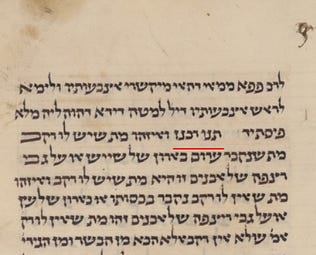 לרב פפא ממאי דהאי מיקשרי אצבעותיו ודילמא
לראש אצבעותיו דיל למטה דירא והוה ליה מלא
פיסת יד תנו רבנן ואיזהו מת שיש לו רקב
מת שנקבר ערום בארון של שייש או על גבי
ריצפה של אבנים זו היא מת שיש לו רקב ואיזהו
מת שאין לו רקב נקבר בכסותו או בארון של עץ
או על גבי ריצפה של אבנים זהו מת שאין לו רק
אמ עולא אין רקב אלא הבא מן הבשר ומן הגידי